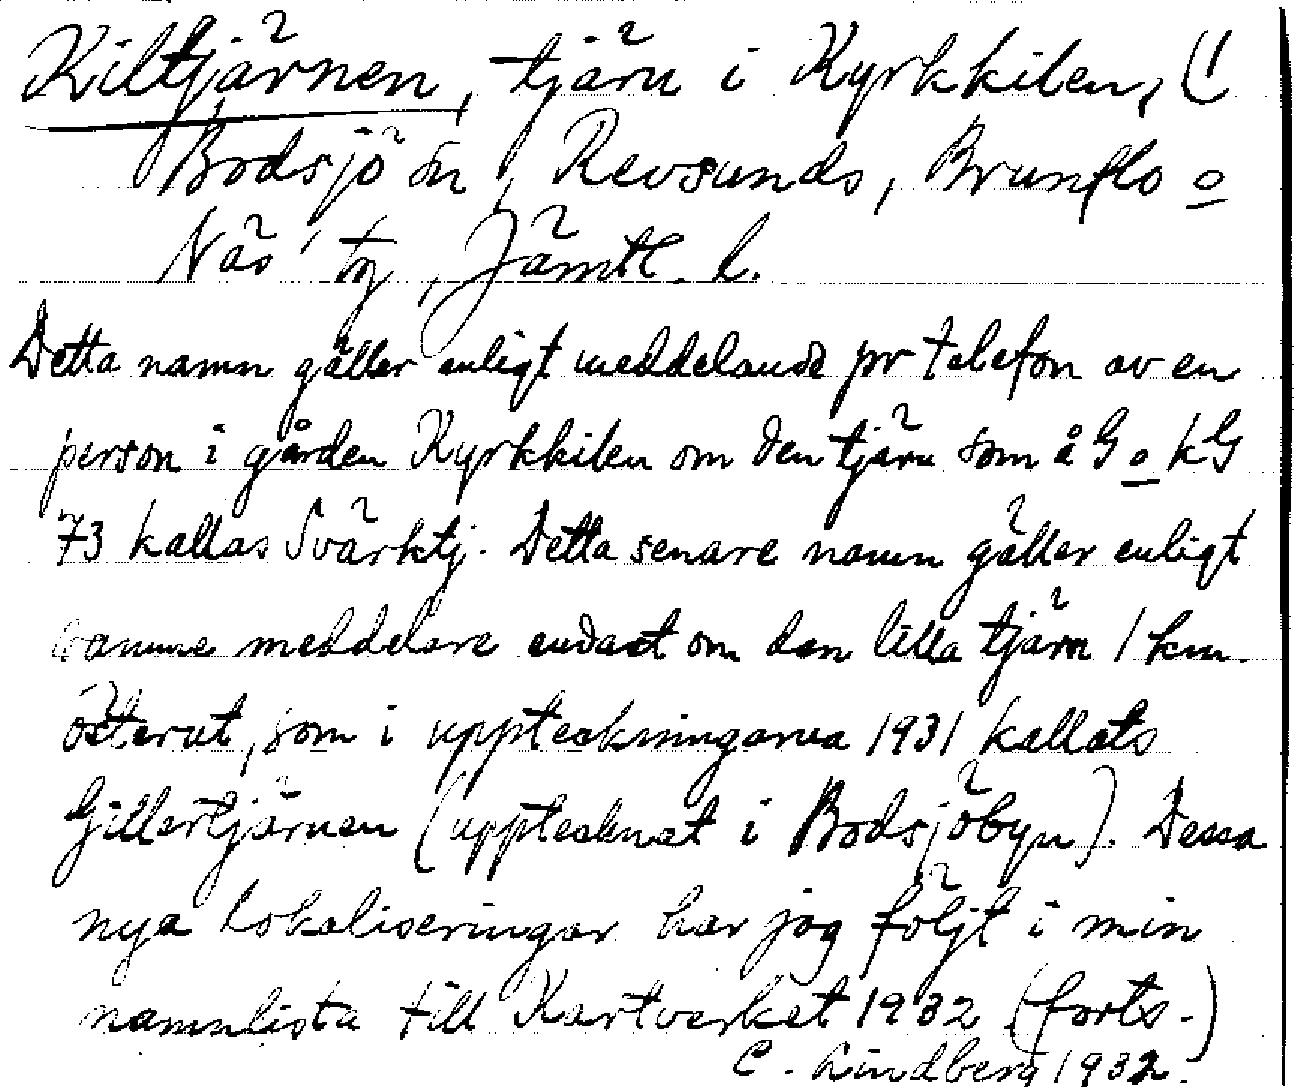 Kiltjärnen, tjärn i Kyrkkilen, (1
Bodsjö sn, Revsunds, Brunflo o
Näs tg, Jämtl. l.
Detta namn gäller enligt meddelande pr telefon av en
person i gården Kyrkkilen om den tjärn som å G o kG
73 kallas Svärktj. Detta senare namn gäller enligt
samme meddelare endast om den lilla tjärn 1 km.
österut, som i uppteckningarna 1931 kallats
Gillertjärnen (upptecknat i Bodsjöbyn). Dessa
nya lokaliseringar har jag följt i min
namnlista till Kartverket 1932 (forts.)
C. Lindberg 1932.